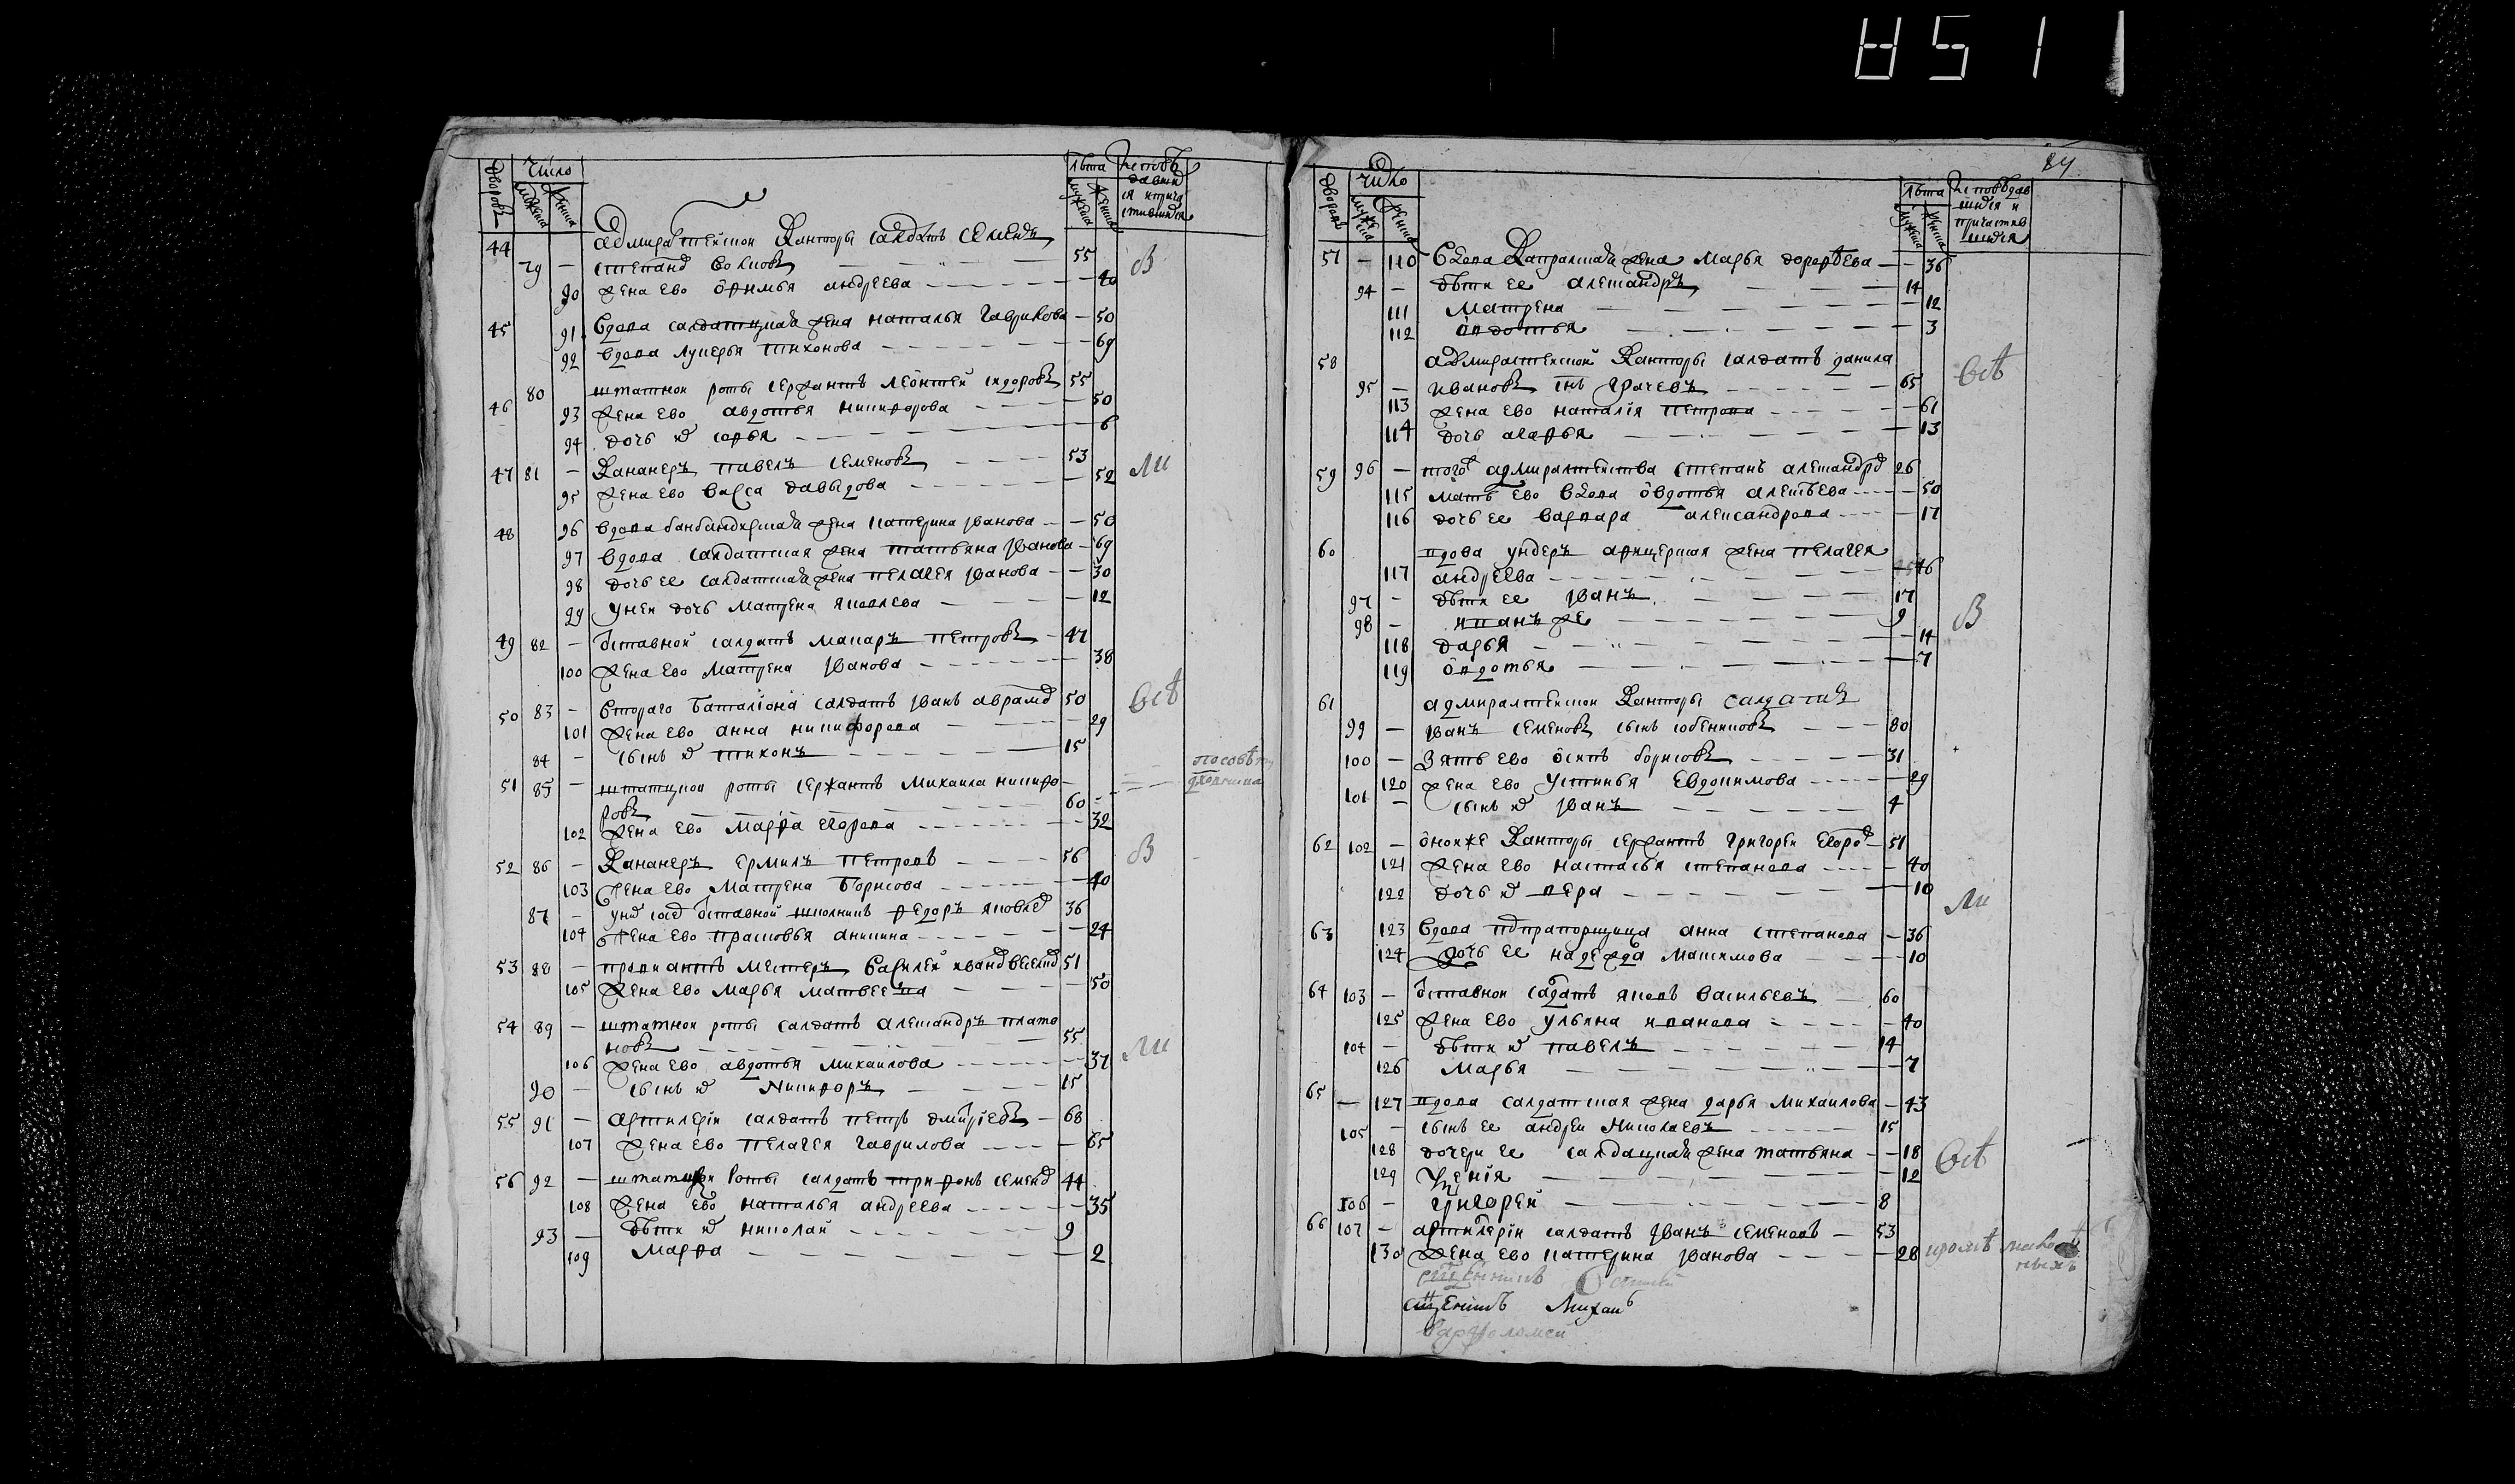 8511
дворовъ
число
мужеска
женска
лѣта
мужеска
женска
исповѣ
давши
ся и прича
стившися
44 адмиралтейскои канторы салдатъ семенъ
79 — степанд волковъ — 55 В
90 жена ево офимья андреева — 40
45 91 вдова салдатцкая жена наталья гаврилова — 50
92 вдова лукерья тихонова — 69
80 штатнои роты сержантъ леонтей сидоровъ 55
46 93 жена ево авдотья никифорова — 50
94 дочь их софья — 6
47 81 — кананеръ павелъ семеновъ — 53 ли
95 жена ево васса давыдова — 52
48 96 вдова катерина иванова — 50
97 вдова салдатская жена татьяна иванова — 69
98 дочь ее салдатская жена пелагея иванова — 30
99 у неи дочь матрена яковлева — 12
49 82 — отставной салдатъ макаръ петровъ — 47
100 жена ево матрена иванова — 38
50 83 — втораго баталіона салдатъ иванъ аврамо 50 всѣ
101 жена ево анна никифорова — 29
84 — сынъ их тихонъ — 15
51 85 — штатцкои роты сержантъ михаила никифо
ровъ — 60
102 жена ево марфа егорова — 32
52 86 — кананеръ ермилъ петровъ — 56 В
103 жена ево матрена борисова — 40
87 — отставной федоръ яковле 36
104 жена ево прасковья аникина — 24
53 88 — мастеръ василей 51
105 жена ево марья матвеева — 50
54 89 — штатнои роты салдатъ александръ плато
новъ — 55 ли
106 жена ево авдотья михаилова — 37
90 — сынъ их никифоръ — 15
55 91 — артилеріи салдатъ петръ дмитріевъ — 68
107 жена ево пелагея гаврилова — 65
56 92 — штатцкои роты салдатъ трифонъ семено 44
108 жена ево наталья андреева — 35
93 — дѣти их николай — 9
109 марфа — 2
дворовъ
число
мужеска
женска
лѣта
мужеска
женска
исповѣдав
шися и
причастив
шися
57 — 110 вдова капралская жена марья дорофѣева — 36
94 — дѣти ее александръ — 14
111 матрена — 12
112 овдотья — 3
58 адмиралтеискои канторы салдатъ данила
95 — ивановъ снъ грачевъ — 65 всѣ
113 жена ево наталія петрова — 61
114 дочь агафья — 13
59 96 — того адмиралтеиства степанъ александро 26
115 мать ево вдова овдотья алексѣева — 50
116 дочь ее варвара александрова — 17
60 вдова ундеръ афицерская жена пелагея
117 андреева — 46
97 — дѣти ее иванъ — 17
98 — иванъ же — 9 В
118 дарья — 14
119 овдотья — 7
61 адмиралтеискои канторы салдатъ
99 — иванъ семеновъ сынъ — 80
100 — зять ево осипъ борисовъ — 31
120 жена ево устинья евдокимова — 29
101 — сынъ их иванъ — 4
62 102 — оноиже канторы сержантъ григореи егоро — 51
121 жена ево настасья степанова — 40
122 дочь их вера — 10 ли
63 123 вдова анна степанова — 36
124 дочь ее надежда максимова — 10
64 103 — отставнои садатъ яковъ васильевъ — 60
125 жена ево ульяна иванова — 40
104 — дѣти их павелъ — 14
126 марья — 7
65 — 127 вдова салдатская жена дарья михаилова — 43
105 — сынъ ее андреи николаевъ — 15
128 дочери ее салдацкая жена татьяна — 18 всѣ
129 — 12
106 — григореи — 8
66 107 — артилеріи салдатъ иванъ семеновъ — 53
130 жена ево катерина иванова — 28 кромѣ
михаиъ
варфоломеи